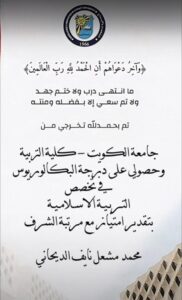 1966
﴿وَآخِرُ دَعْوَاهُمْ أَنِ الْحَمْدُ لِلَّهِ رَبِّ الْعَالَمِينَ﴾
ما انتهى درب ولا ختم جهد
ولا تم سعي إلا بفضله ومنته
تم بحمدلله تخرجي من
جامعة الكويت - كلية التربية
وحصولي على درجة البكالوريوس
في تخصص
التربية الاسلامية
بتقدير امتياز مع مرتبة الشرف
محمد مشعل نايف الديحاني